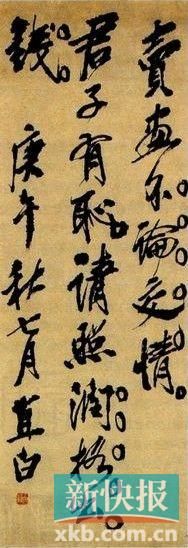 賣畫不論交情。
君子有恥請照潤格出
錢。庚午秋七月直白
新快报
www.xkb.com.cn
xkb.com.cn